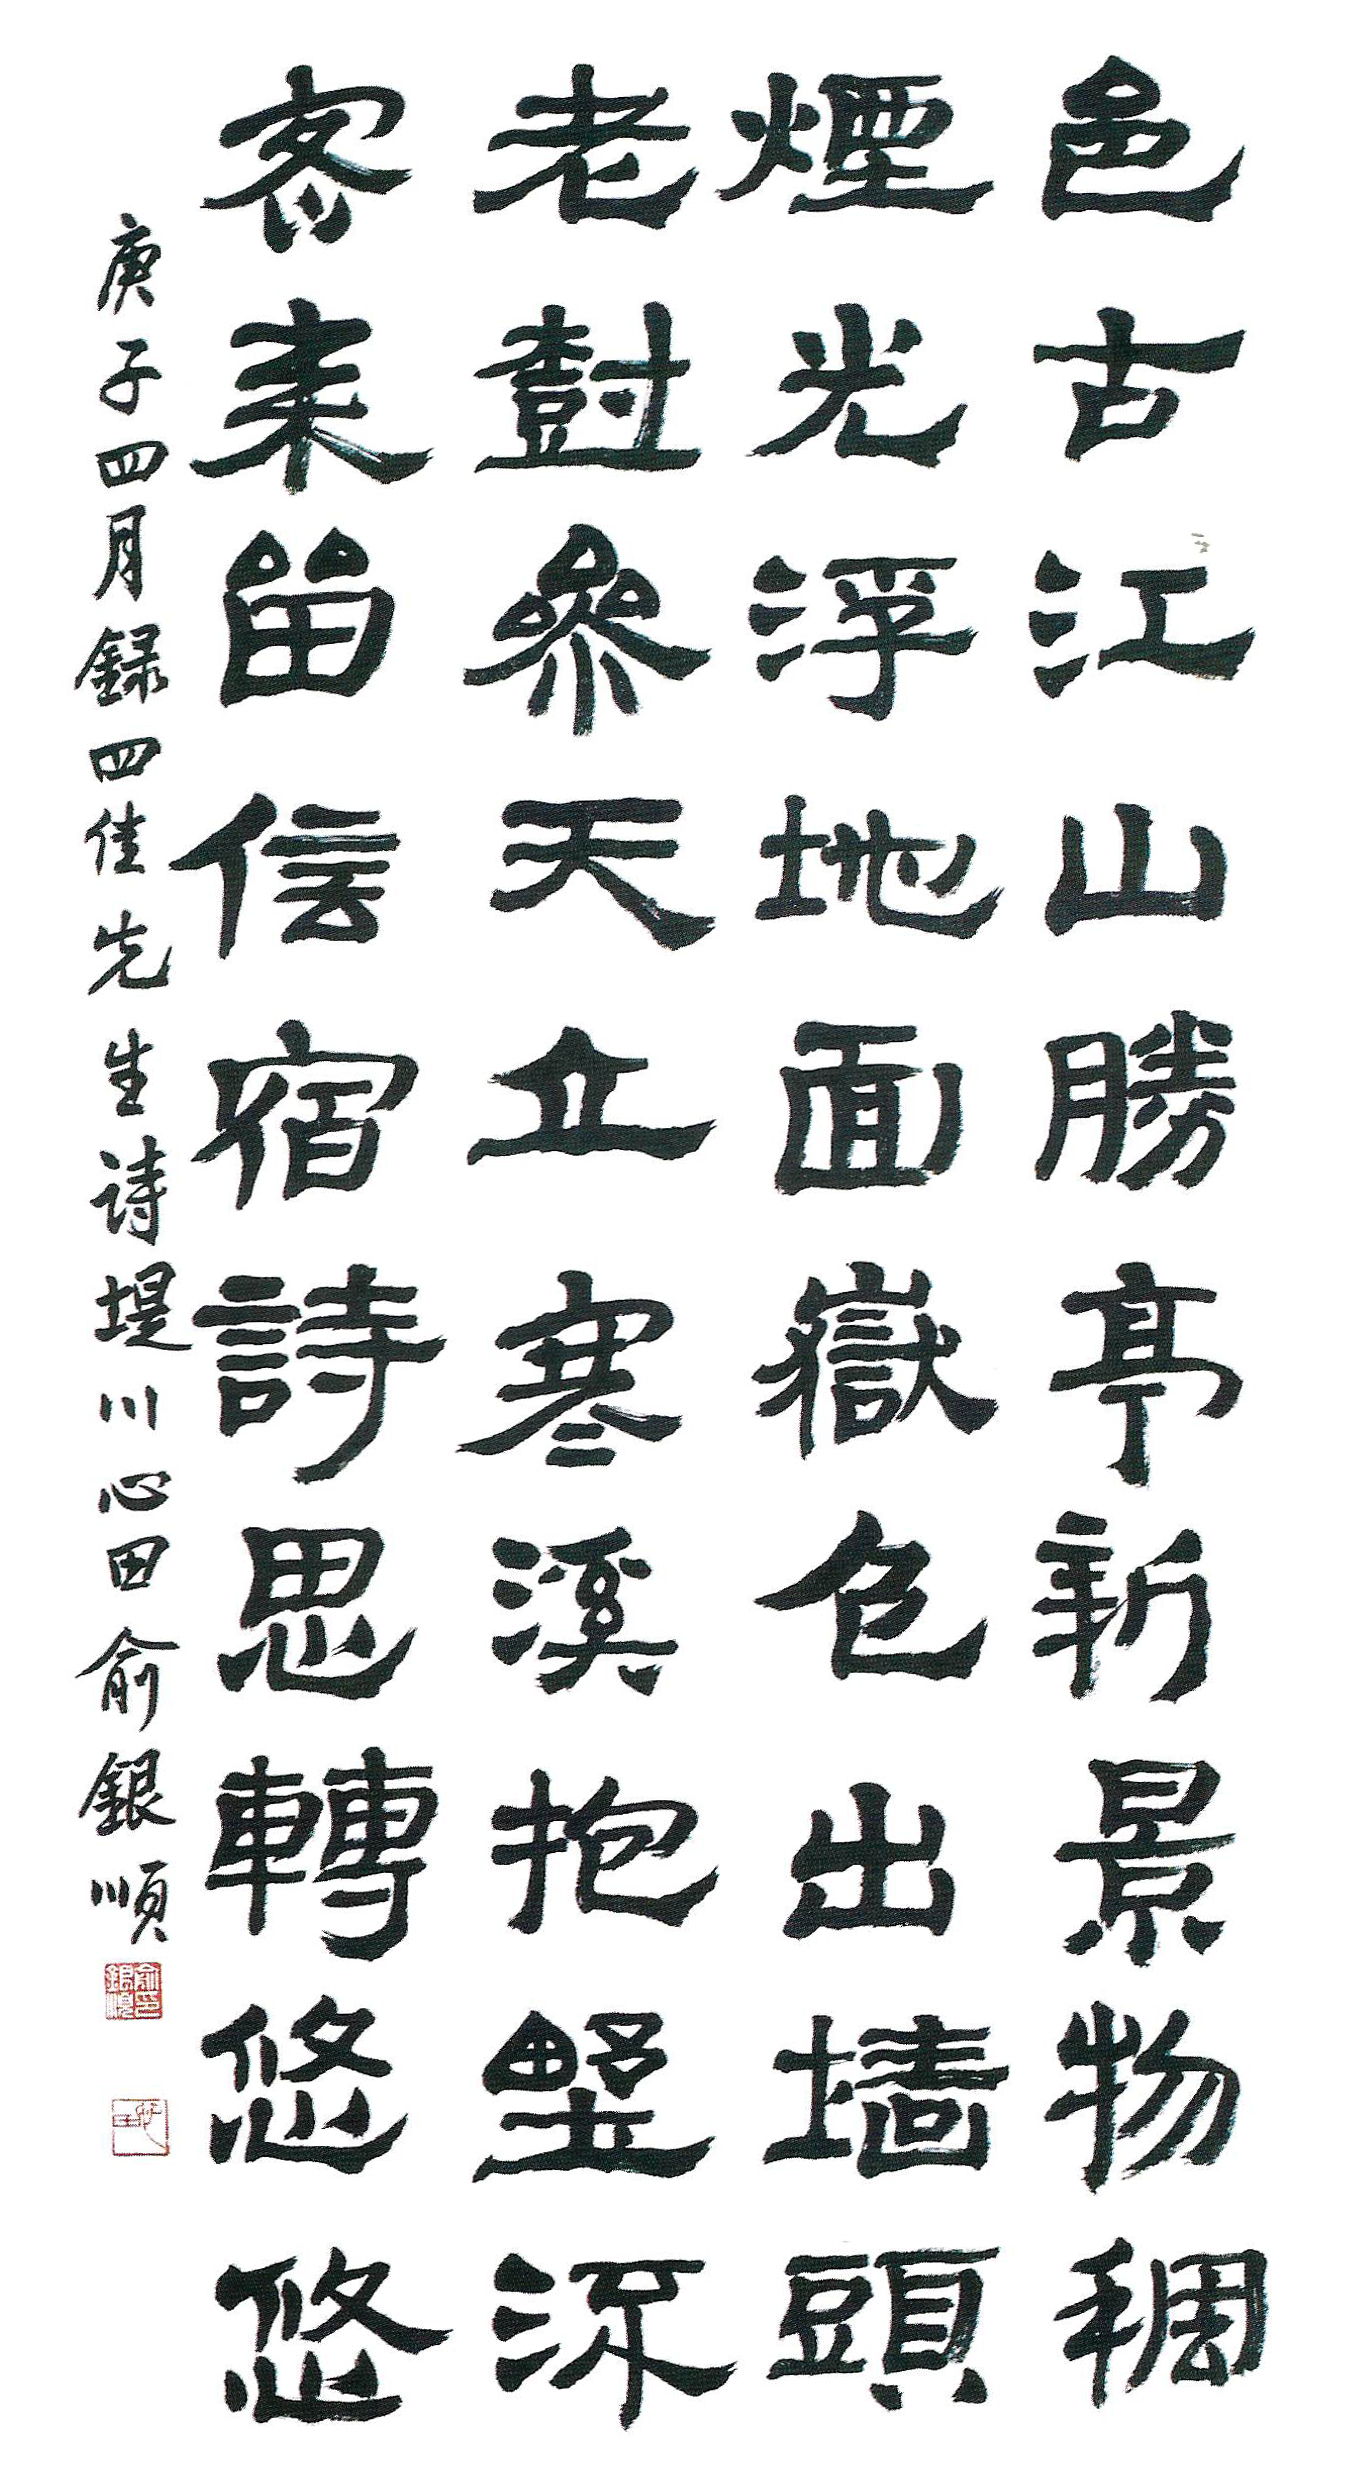 邑古江山勝亭新景物稠
煙光浮地面嶽色出墻頭
老樹參天立寒溪抱野流
客來留信宿詩思轉悠悠
庚子四月録四佳先生詩堤川心田俞銀順
俞銀順印